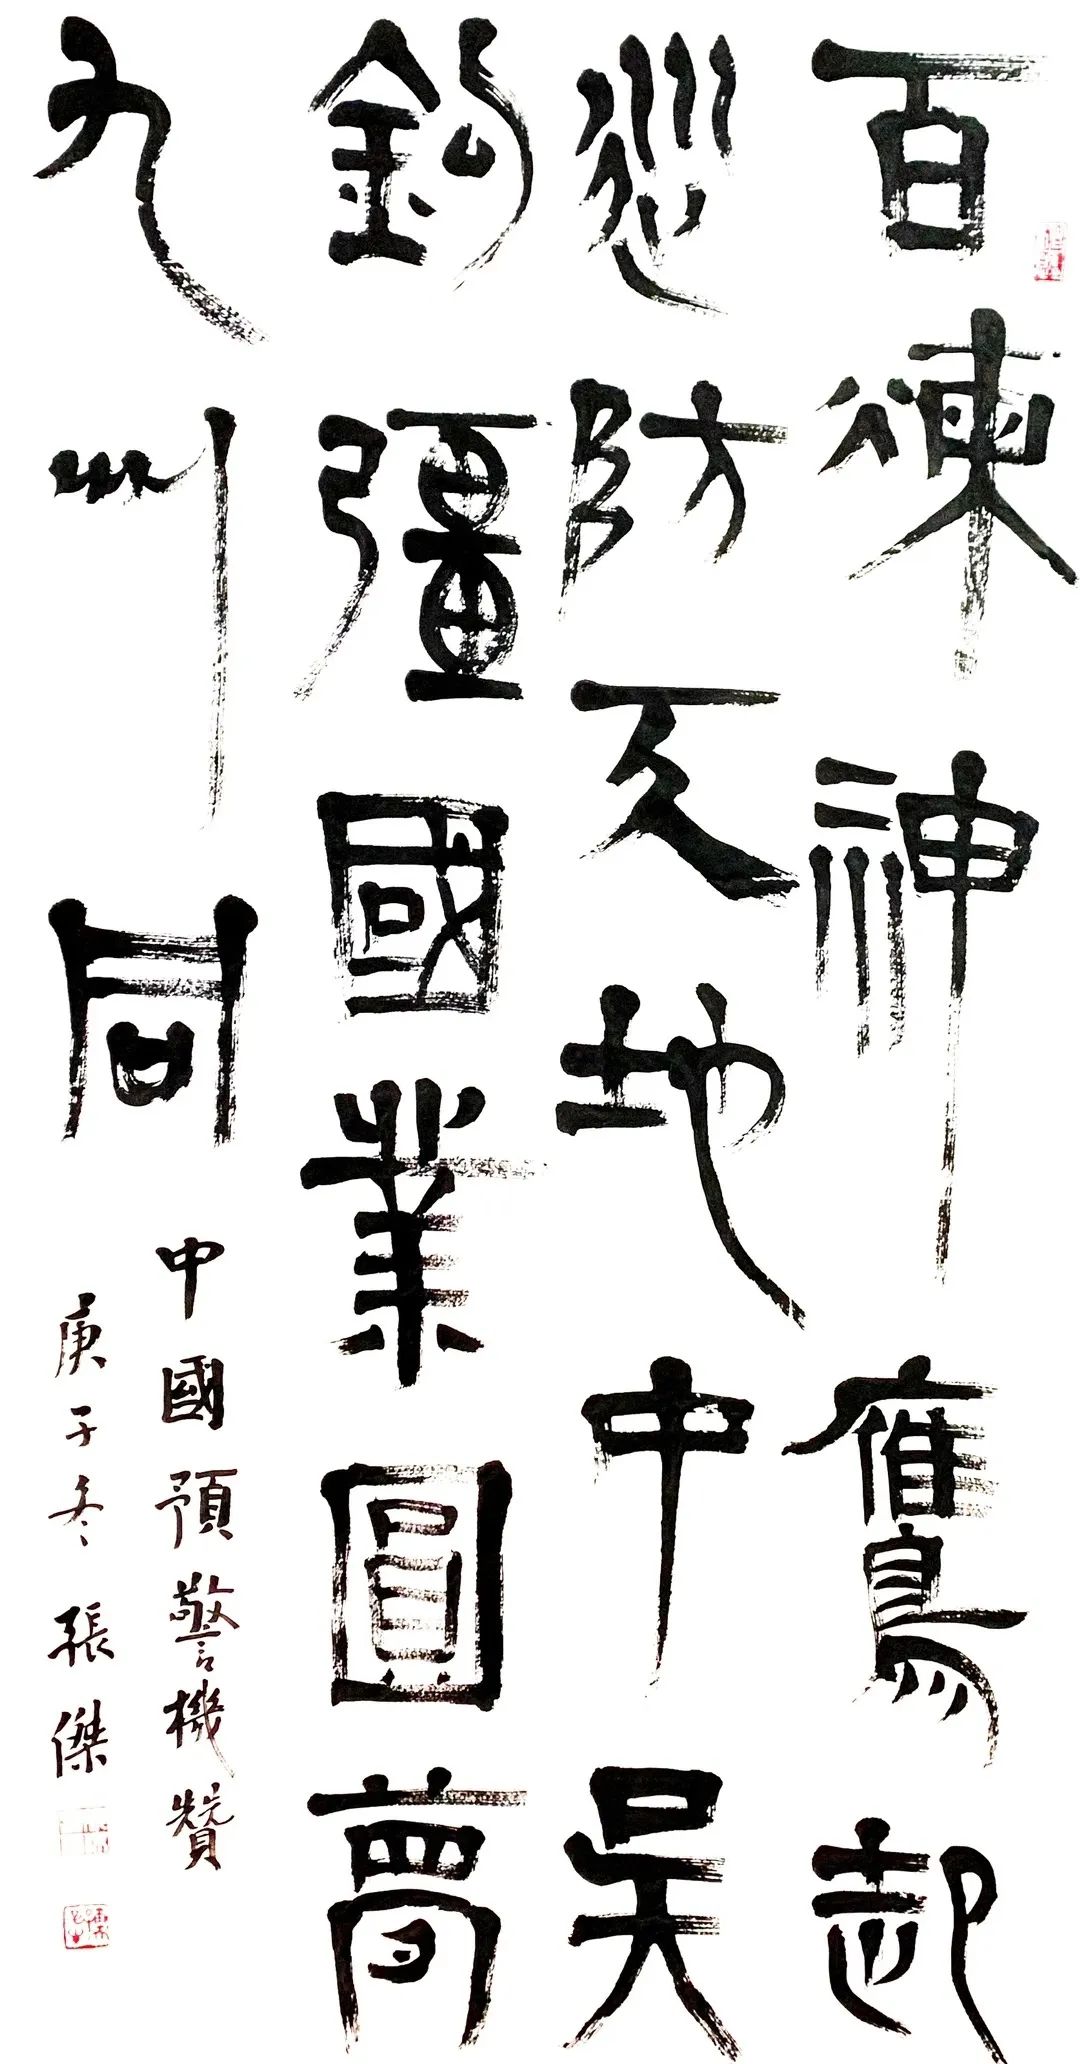 百煉神鷹起
巡防天地中吴
鈎彊國業圓夢
九州同
中國預警機贊
庚子冬張傑